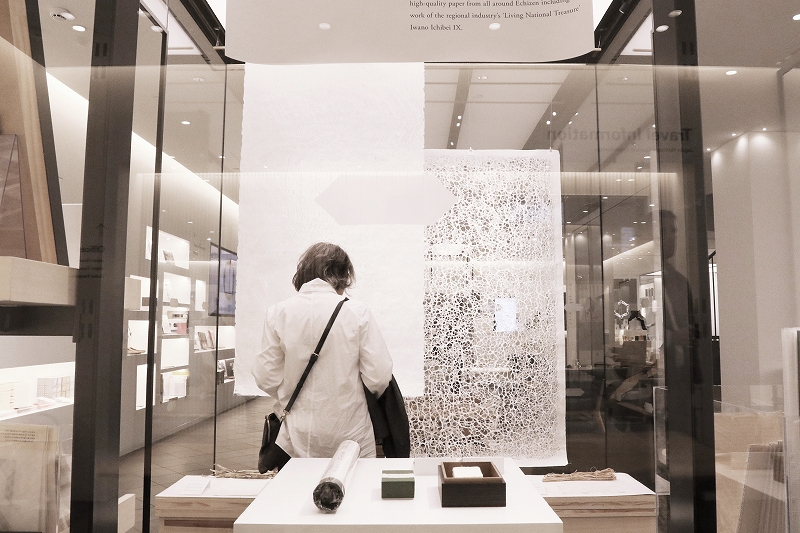 high-quality paper from all around Echizen including
work of the regional industry's 'Living National Treasure'
Iwano Ichibei IX.
Travel Information